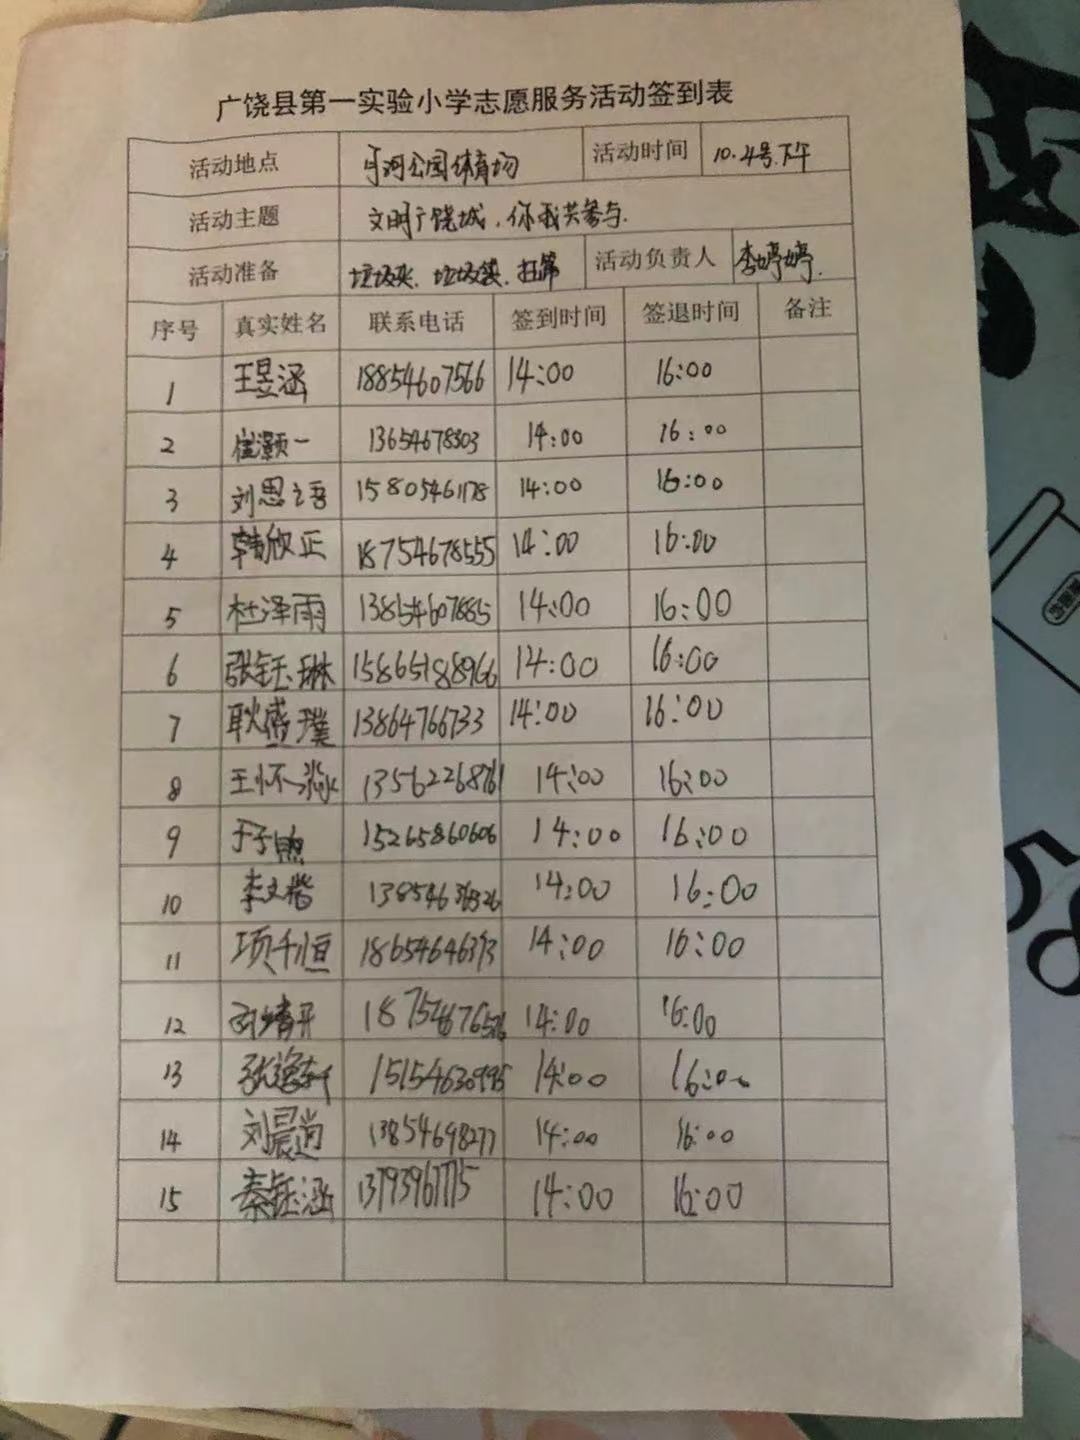 广饶县第一实验小学志愿服务活动签到表
活动地点 河公园体育场 活动时间 10.4号.下午
活动主题 文明广饶城,你我共参与.
活动准备 垃圾夹、垃圾袋、扫帚 活动负责人 李婷婷.
序号 真实姓名 联系电话 签到时间 签退时间 备注
1 王昱涵 18854607566 14:00 16:00
2 崔灏一 13654678303 14:00 16:00
3 刘思语 15805461178 14:00 16:00
4 韩欣正 18754678555 14:00 16:00
5 杜泽雨 13854607885 14:00 16:00
6 张钰琳 15865188966 14:00 16:00
7 耿盛璞 13864766733 14:00 16:00
8 王怀淼 13562268761 14:00 16:00
9 于子 15265860606 14:00 16:00
10 李文楷 14:00 16:00
11 项千恒 18654646373 14:00 16:00
12 14:00 16:00
13 张逸轩 15154630995 14:00 16:00
14 刘晨尚 13854698277 14:00 16:00
15 秦钰涵 14:00 16:00
58